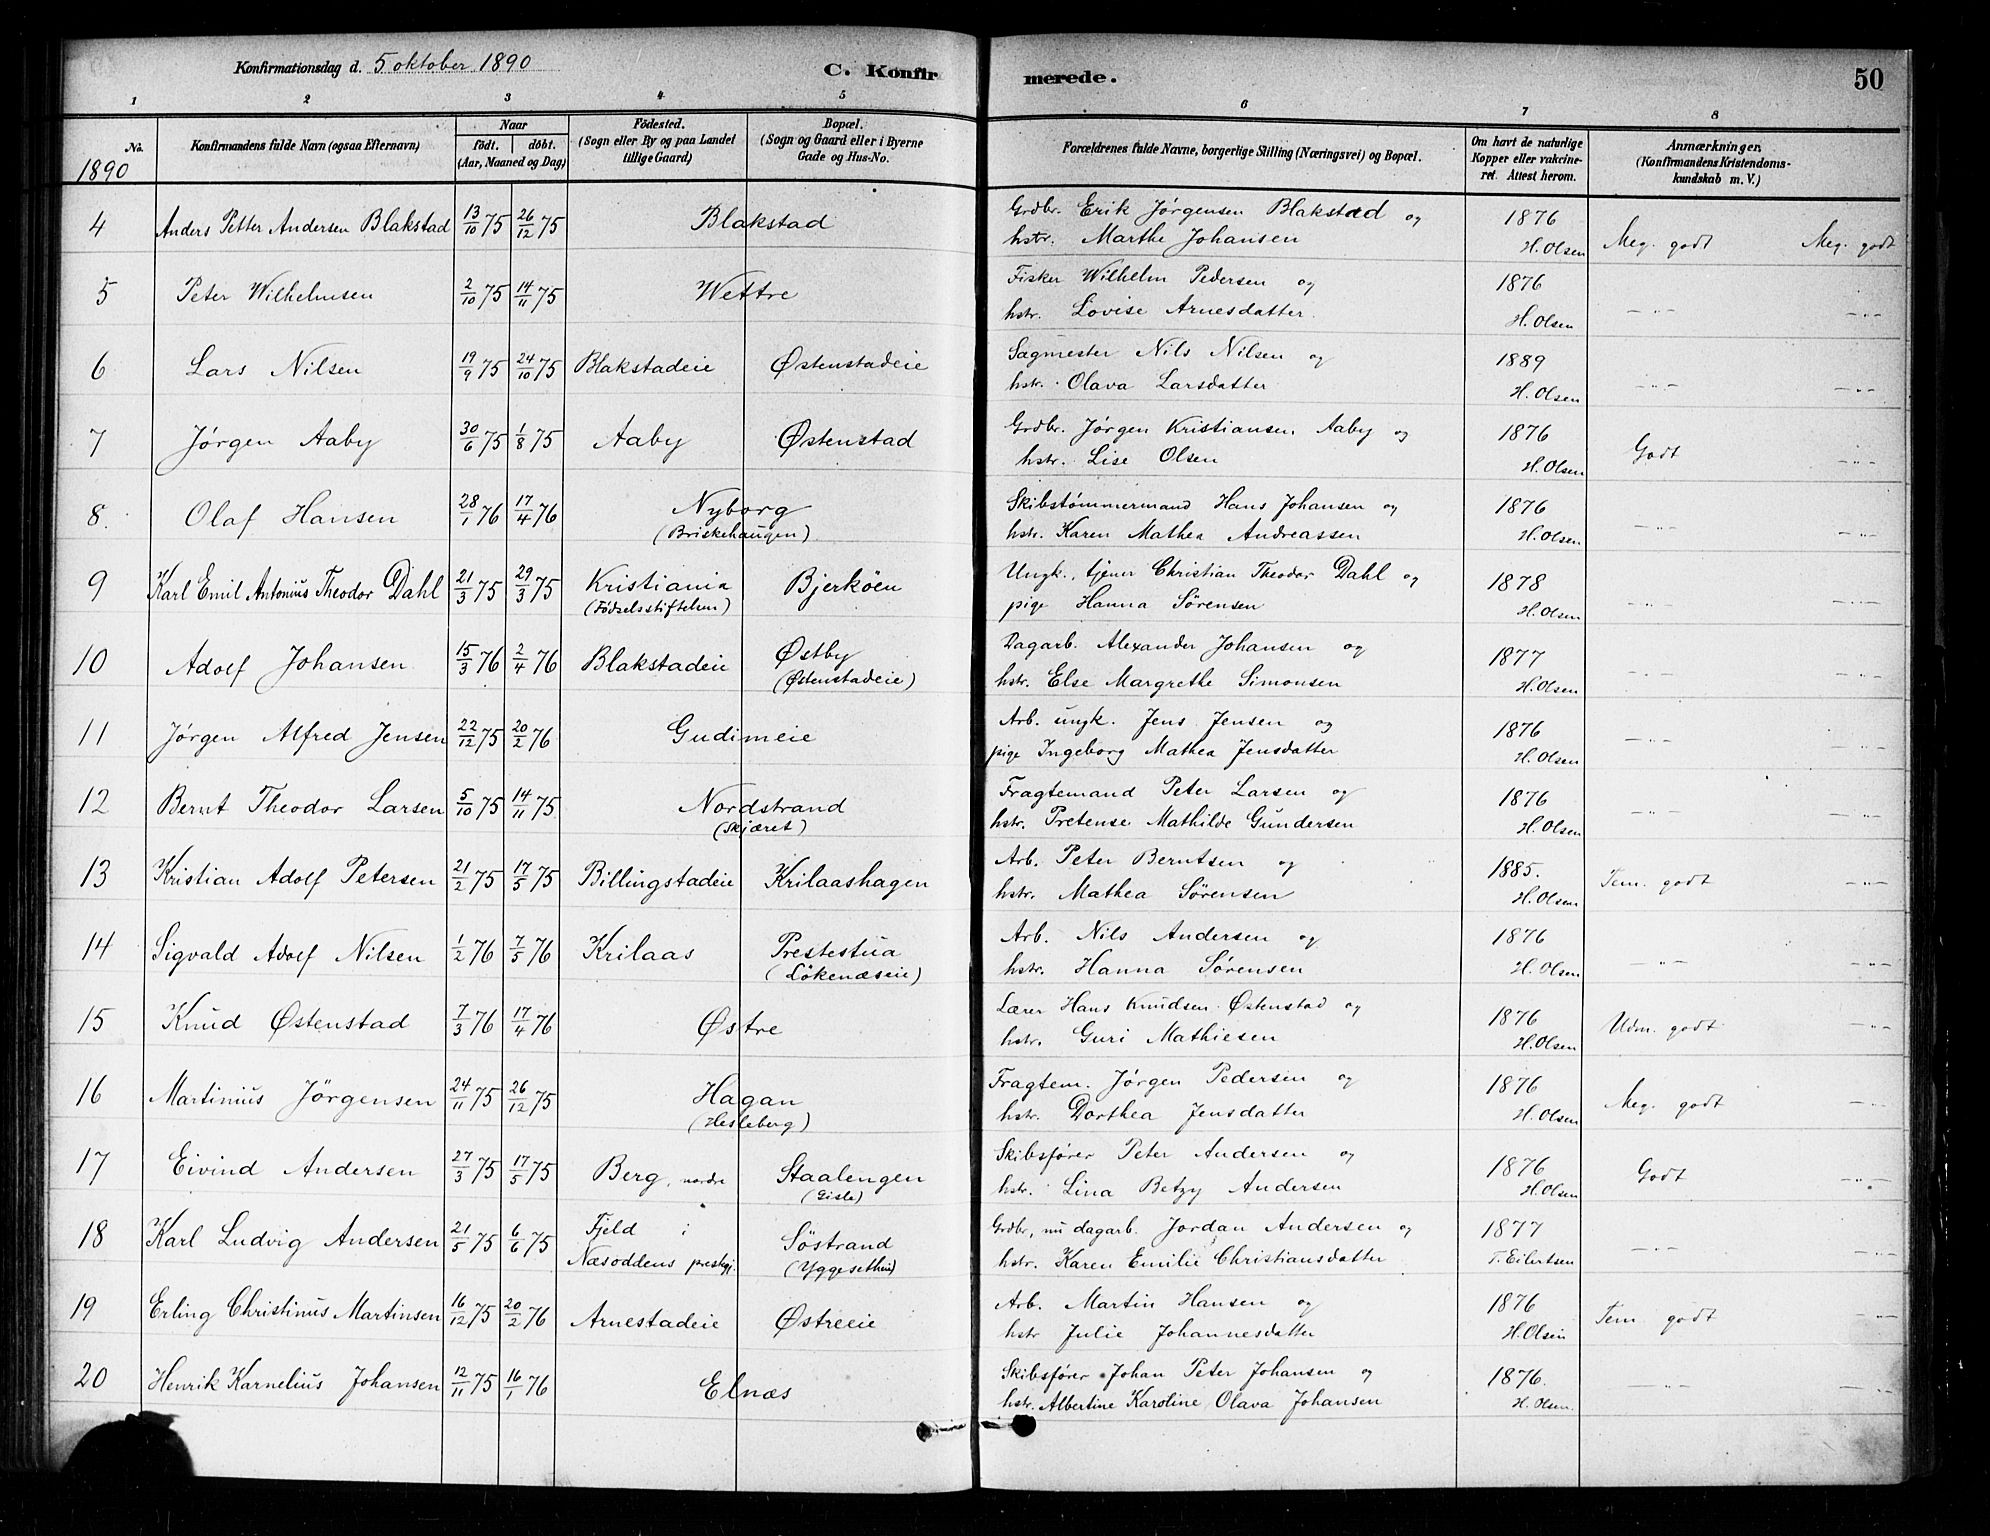 Konfirmationsdag d. 5 oktober 1890
C. Konfirmerede.
50
1 2 3 4 5 6 7 8
No.
Konfirmandens fulde Navn (ogsaa Efternavn)
Naar
født. døbt.
(Aar, Maaned og Dag)
Fødested.
(Sogn eller By og paa Landet
tillige Gaard)
Bopæl.
(Sogn og Gaard eller i Byerne
Gade og Hus-No.
Forældrenes fulde Navne, borgerlige Stilling (Næringsvei) og Bopæl.
Om havt de naturlige
Kopper eller vakcine-
ret. Attest herom.
Anmærkninger.
(Konfirmandens Kristendoms-
kundskab m. V.)
1890
4 Anders Petter Andersen Blakstad 13/10 75 26/12 75 Blakstad Grdbr. Erik Jørgensen Blakstad og 1876
hstr. Marthe Johansen H. Olsen Meg. godt Meg. godt
5 Peter Wilhelmsen 2/10 75 14/11 75 Wettre Fisker Wilhelm Pedersen og 1876
hstr. Lovise Arnesdatter. H. Olsen —„— —„—
6 Lars Nilsen 19/9 75 24/10 75 Blakstadeie Østenstadeie Sagmester Nils Nilsen og 1889
hstr. Olava Larsdatter H. Olsen —„— —„—
7 Jørgen Aaby 30/6 75 1/8 75 Aaby Østenstad Grdbr. Jørgen Kristiansen Aaby og 1876
hstr. Lise Olsen H. Olsen Godt —„—
8. Olaf Hansen 28/1 76 17/4 76 Nyborg Skibstømmermand Hans Johansen og 1876
(Briskehaugen) hstr. Karen Mathea Andreassen H. Olsen —„— —„—
9 Karl Emil Antonius Theodor Dahl 21/3 75 29/3 75 Kristiania Bjerkøen Ungk., tjener Christian Theodor Dahl og 1878
(Fødselsstiftelsen) pige Hanna Sørensen H. Olsen —„— —„—
10 Adolf Johansen 15/3 76 2/4 76 Blakstadeie Østby Dagarb. Alexander Johansen og 1877
(Østenstadeie) hstr. Else Margrethe Simonsen H. Olsen —„— —„—
11 Jørgen Alfred Jensen 22/12 75 20/2 76 Gudimeie Arb. ungk. Jens Jensen og 1876
pige Ingeborg Mathea Jensdatter H. Olsen —„— —„—
12 Bernt Theodor Larsen 5/10 75 14/11 75 Nordstrand Fragtemand Peter Larsen og 1876
(Skjæret) hstr. Pretense Mathilde Gundersen H. Olsen —„— —„—
13 Kristian Adolf Petersen 21/2 75 17/5 75 Billingstadeie Krilaashagen Arb. Peter Berntsen og 1885.
hstr. Mathea Sørensen H. Olsen Tem. godt —„—
14 Sigvald Adolf Nilsen 1/2 76 7/5 76 Krilaas Prestestua Arb. Nils Andersen og 1876
(Løkenæseie) hstr. Hanna Sørensen H. Olsen —„— —„—
15 Knud Østenstad 7/3 76 17/4 76 Østre Lærer Hans Knudsen Østenstad og 1876
hstr. Guri Mathiesen H. Olsen Udm. godt —„—
16 Martinius Jörgensen 24/11 75 26/12 75 Hagan Fragtem. Jørgen Pedersen og 1876
(Hesleberg) hstr. Dorthea Jensdatter H. Olsen Meg. godt —„—
17 Eivind Andersen 27/3 75 17/5 75 Berg, nordre Staalengen Skibsfører Peter Andersen og 1876
(Gisle) hstr. Lina Betzy Andersen H. Olsen Godt —„—
18 Karl Ludvig Andersen 21/5 75 6/6 75 Fjeld i Söstrand Grdbr, nu dagarb. Jordan Andersen og 1877
Næsoddens prestegj. (Yggesethus) hstr. Karen Emilie Christiansdatter T. Eilertsen —„— —„—
19 Erling Christinus Martinsen 16/12 75 20/2 76 Arnestadeie Østreeie Arb. Martin Hansen og 1876
hstr Julie Johannesdatter H. Olsen Tem. godt —„—
20 Henrik Karnelius Johansen 12/11 75 16/1 76 Elnæs Skibsfører Johan Peter Johansen og 1876.
hstr. Albertine Karoline Olava Johansen H. Olsen. —„— —„—